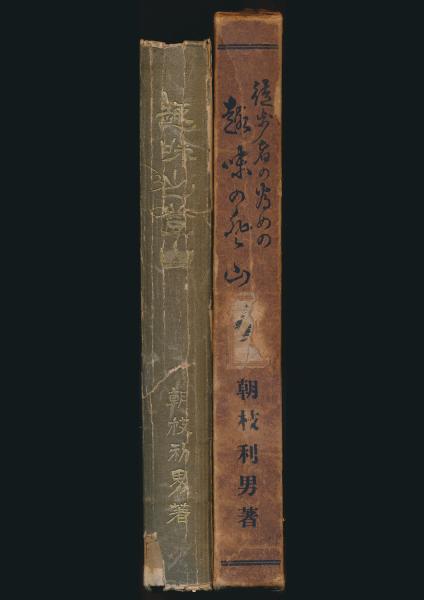 徒歩者の為めの
趣味の登山
朝枝利男著
趣味の登山
朝枝利男著